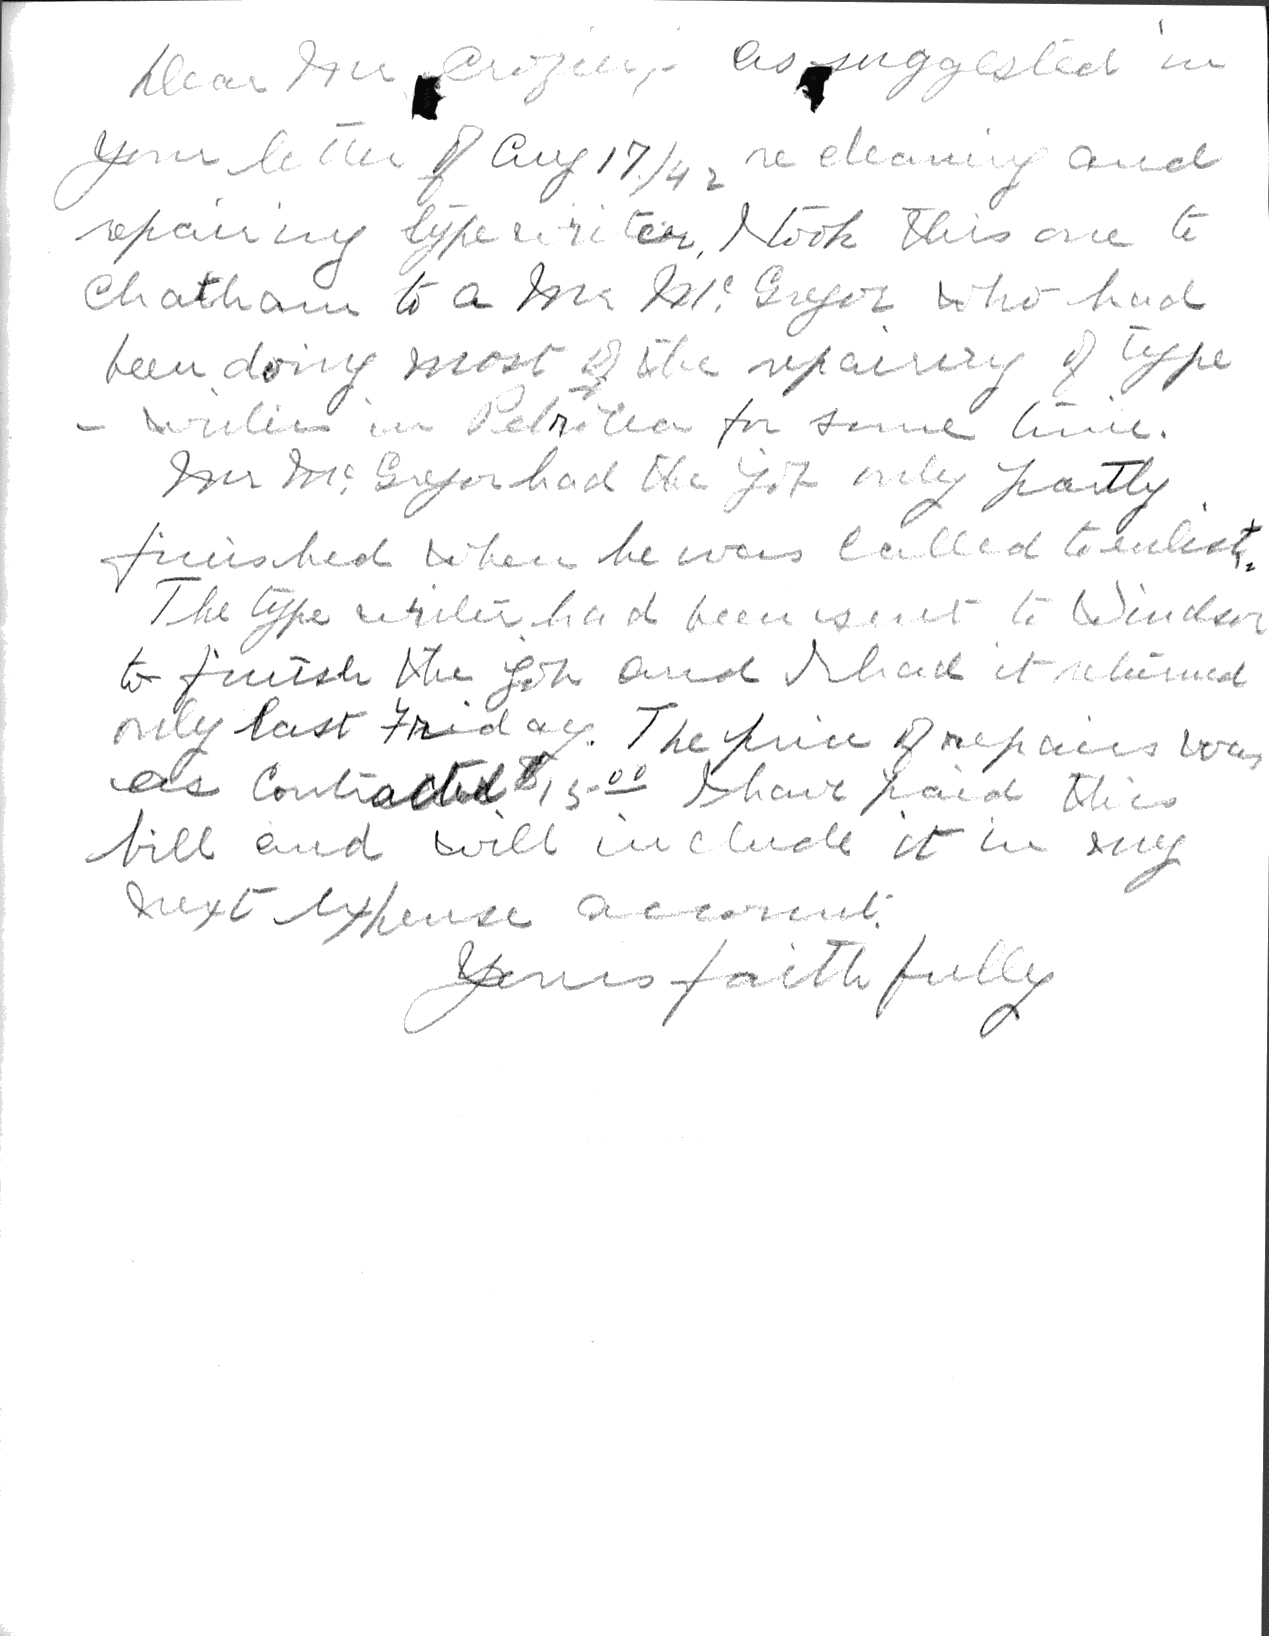 Dear Mr Crozier;- As suggested in
your letter of Aug 17/42 re cleaning and
repairing typewriter, I took this one to
Chatham to a Mr McGregor who had
been doing most of the repairing of type
- writers in Petrolea for some time.
Mr McGregor had the job only partly
finished when he was called to enlist.
The type writer had been sent to Windsor
to finish the job and I had it returned
only last Friday. The price of repairs was
as contracted $15.00 I have paid this
bill and will include it in my
next expense account.
Yours faithfully